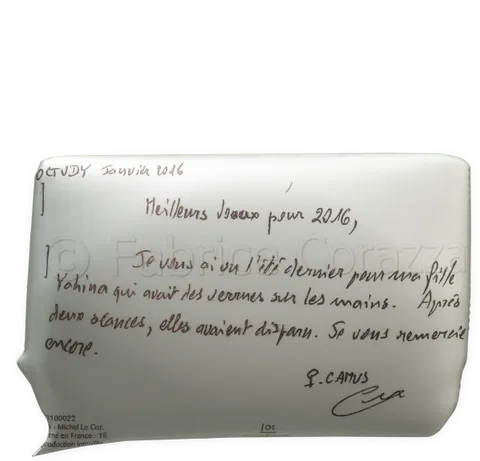 LOCTUDY Janvier 2016
Meilleurs voeux pour 2016,
© Fabrice Corazza
Je vous ai vu l'été dernier pour ma fille
Yohina qui avait des verrues sur les mains. Après
deux séances, elles avaient disparu. Je vous remercie
encore.
CAMUS
3100022
- Michel Le Coz.
mé en France - 16
roduction interdite
101